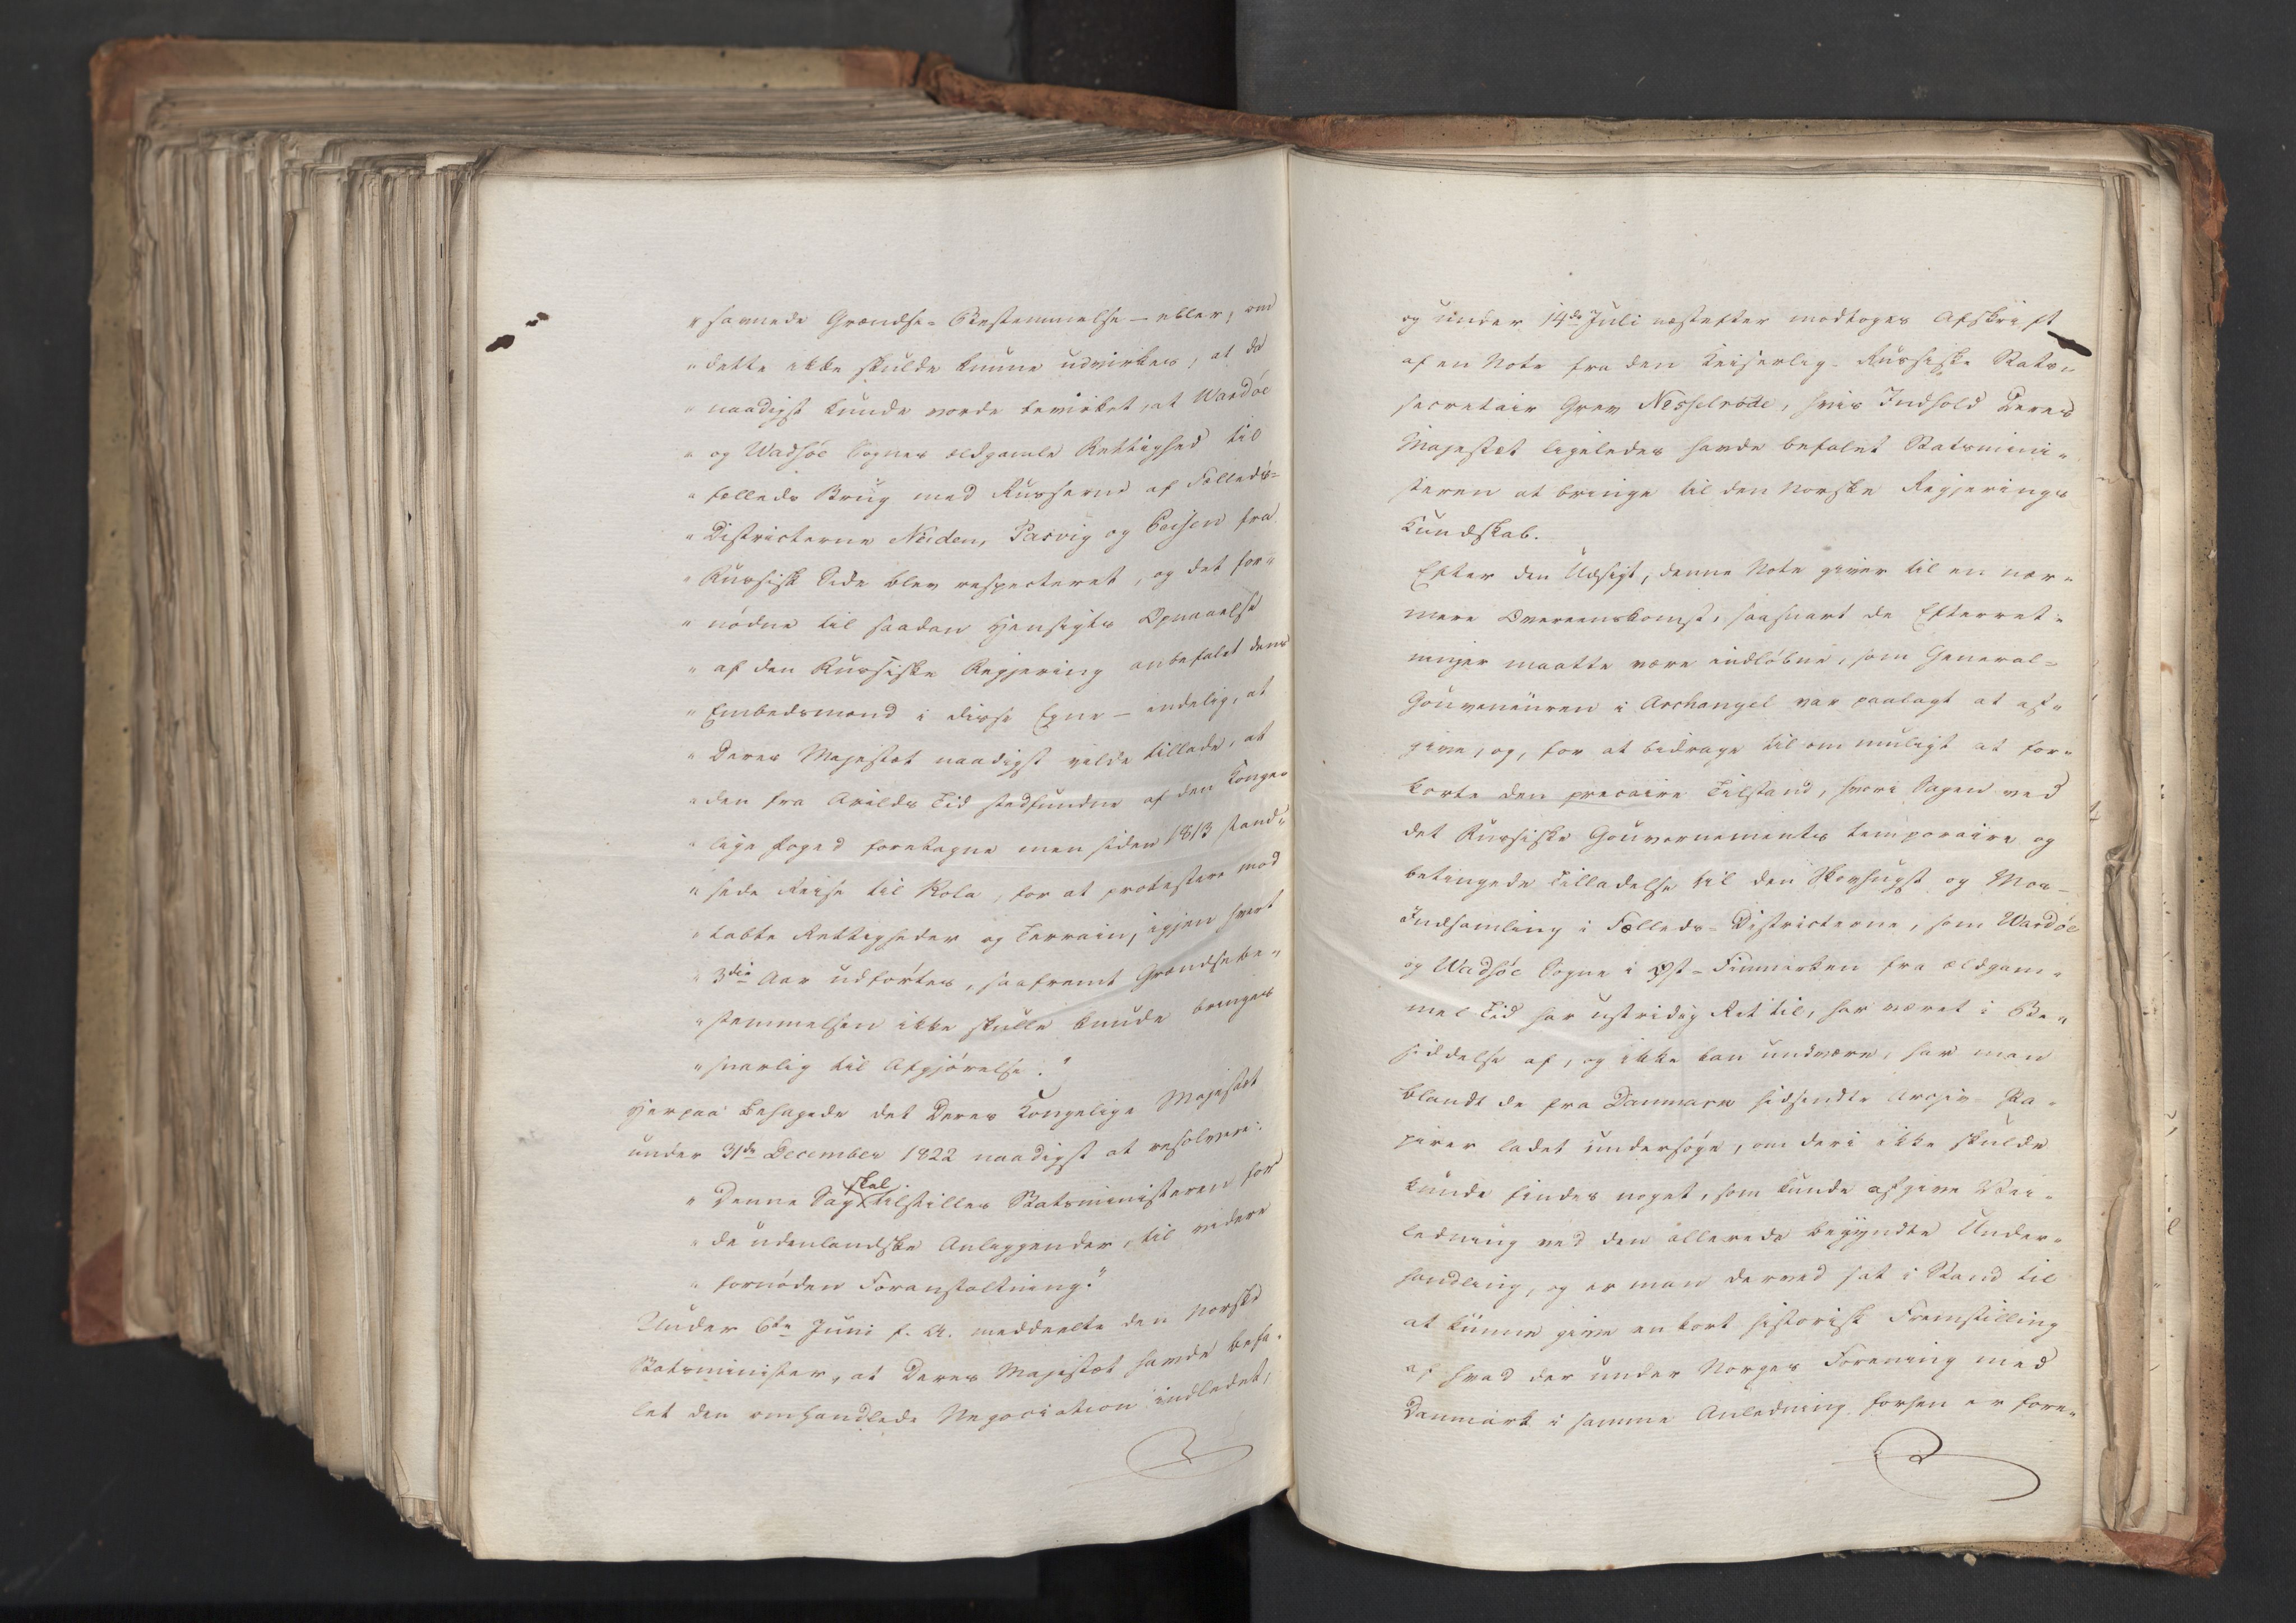 "savnede Grændse-Bestemmelse – eller, om
"dette ikke skulde kunne udvirkes, at da
"naadigst kunde vorde bevirket, at Wardøe
"og Wadsøe Sognes ældgamle Rettighed til
"fælleds Brug med Russerne af Fælleds=
"Districterne Neiden, Pasvig og Peisen fra
"Russisk Side blev respecteret, og det for"
"nödne til saadan Hensigts Opnaaelse
"af den Russiske Regjering anbefalet dens
"Embedsmænd i disse Egne – endelig, at
"Deres Majestæt naadigst vilde tillade, at
"den fra Arilds Tid stedfundne af den Konge"
"lige Foged foretagne men siden 1813 stand"
"sede Reise til Kola, for at protestere mod
"tabte Rettigheder og Terrain, igjen hvert
"3die Aar udförtes, saafremt Grændsebe"
"stemmelsen ikke skulle kunde bringes
"snarlig til Afgjörelse."
Herpaa behagede det Deres Kongelige Majestæt
under 31de December 1822 naadigst at resolvere:
"Denne Sag skal tilstilles Statsministeren for
"de udenlandske Anliggender, til videre
"fornöden Foranstaltning."
Under 6te Juni f. A. meddeelte den norske
Statsminister, at Deres Majestæt havde befa"
let den omhandlede Negociation indledet,
og under 14de Juli næstefter modtoges Afskrift
af en Note fra den Keiserlig-Russiske Stats"
secretair Grev Nesselrode, hvis Indhold Deres
Majestæt ligeledes havde befalet Statsmini"
steren at bringe til den Norske Regjerings
Kundskab.
Efter den Udsigt, denne Note giver til en nær"
mere Overeenskomst, saasnart de Efterret"
ninger maatte være indløbne, som General=
Gouverneuren i Archangel var paalagt at af"
give, og, for at bidrage til om muligt at for"
korte den precaire Tilstand, hvori Sagen ved
det Russiske Gouvernements temporaire og
betingede Tilladelse til den Skovhugst og Mos-
Indsamling i Fælleds=Districterne, som Wardöe
og Wadsöe Sogne i Öst-Finmarken fra ældgam"
mel Tid har ustridig Ret til, har været i Be"
siddelse af, og ikke kan undvære, har man
blandt de fra Danmark hidsendte Archiv-Pa"
pirer ladet undersöge, om deri ikke skulde
kunde findes noget, som kunde afgive Vei"
ledning ved den allerede begyndte Under"
handling, og er man derved sat i Stand til
at kunne give en kort historisk Fremstilling
af hvad der under Norges Forening med
Danmark i samme Anledning forhen er fore"